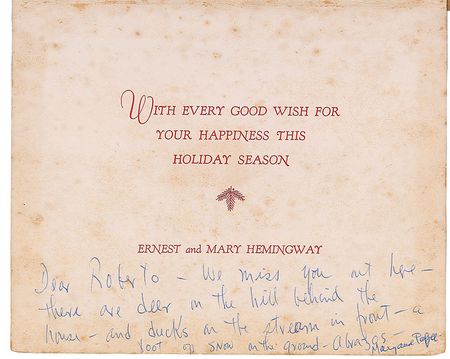 WITH EVERY GOOD WISH FOR
YOUR HAPPINESS THIS
HOLIDAY SEASON
ERNEST and MARY HEMINGWAY
Dear Roberto - We miss you out here -
there are deer on the hill behind the
house - and ducks in the stream in front - a
foot of snow on the ground - abrazos -
Mary and